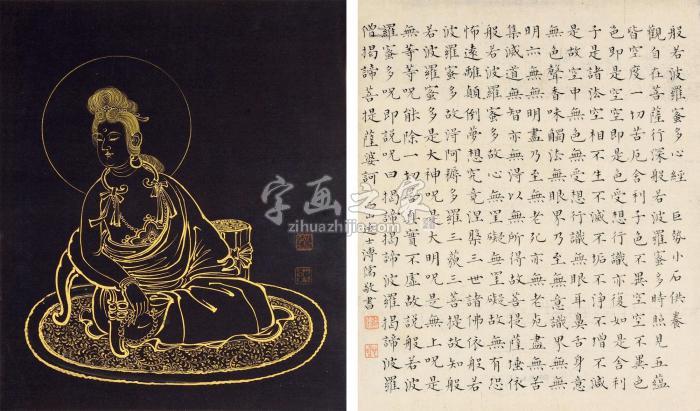 般若波羅蜜多心經　巨勢小石供養
觀自在菩薩行深般若波羅蜜多時照見五蘊
皆空度一切苦厄舍利子色不異空空不異色
色即是空空即是色受想行識亦復如是舍利
子是諸法空相不生不滅不垢不淨不增不減
是故空中無色無受想行識無眼耳鼻舌身意
無色聲香味觸法無眼界乃至無意識界無無
明亦無無明盡乃至無老死亦無老死盡無苦
集滅道無智亦無得以無所得故菩提薩埵依
般若波羅蜜多故心無罣礙無罣礙故無有恐
怖遠離顛倒夢想究竟涅槃三世諸佛依般若
波羅蜜多故得阿耨多羅三藐三菩提故知般
若波羅蜜多是大神呪是大明呪是無上呪是
無等等呪能除一切苦真實不虛故說般若波
羅蜜多呪即說呪曰揭諦揭諦波羅揭諦波羅
僧揭諦菩提薩婆訶　士溥儒敬書
字画之家
zihuazhijia.com